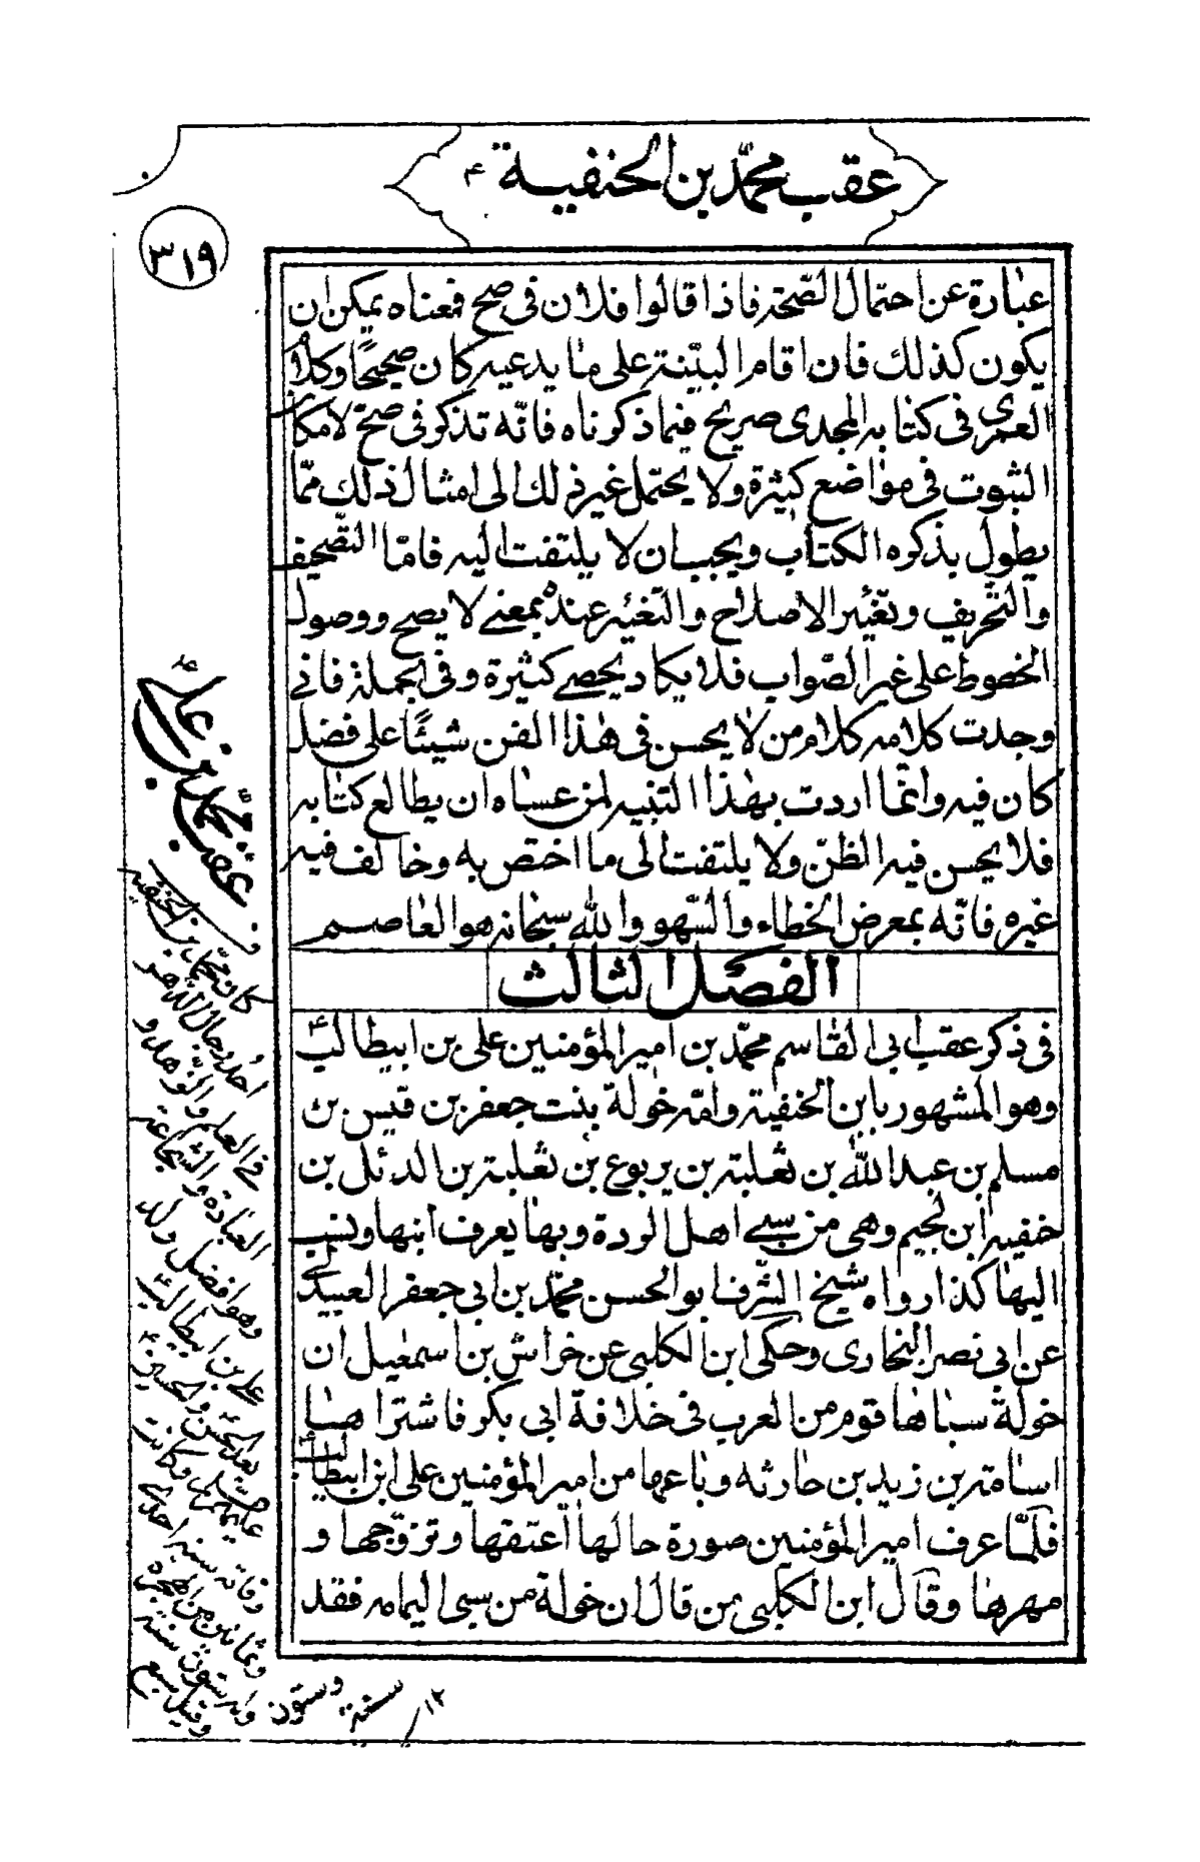 عقب محمّد بن الحنفية ع
٣١٩
عبارة عن احتمال الصّحة فاذا قالوا فلان فى صح فمعناه يمكن ان
يكون كذلك فان اقام البيّنة على ما يدعيه كان صحيحًا وكلام
العمرى فى كتابه المجدى صريح فيما ذكرناه فانّه تذكر فى صحّ لامكان
الثبوت فى مواضع كثيرة ولا يحتمل غير ذلك الى امثال ذلك ممّا
يطول بذكره الكتاب ويجب ان لا يلتفت اليه فامّا التّصحيف
والتّحريف وتغّير الاصلاح والتغيّر عنده بمعنى لا يصح ووصول
الخطوط على غير الصّواب فلا يكاد يحصى كثيرة وفى الجملة فانى
وجدت كلامه كلام من لا يحسن فى هذا الفن شيئًا على فضل
كان فيه وانّما اردت بهذا التنبيه لمن عساه ان يطالع كتابه
فلا يحسن فيه الظنّ ولا يلتفت الى ما اختص به وخالف فيه
غيره فانّه بمعرض الخطاء والسّهو واللّه سبحانه هو العاصم
الفصل الثالث
فى ذكر عقب ابى القاسم محمّد بن امير المؤمنين على بن ابيطالب ع
وهو المشهور بابن الحنفية وامّه خولة بنت جعفر بن قيس بن
مسلم بن عبد اللّه بن ثعلبة بن يربوع بن ثعلبة بن الدئل بن
حنفيه ابن لجيم وهى من سبى اهل الردة وبها يعرف ابنها ونسب
اليها كذا رواه شيخ الشّرف ابو الحسن محمّد بن ابى جعفر العبيدلى
عن ابى نصر البخارى وحكى ابن الكلبى عن خراش بن اسمعيل ان
خولة سباها قوم من العرب فى خلافة ابى بكر فاشتراها
اسامة بن زيد بن حارثه وباعها من امير المؤمنين على ابن ابيطالب ع
فلمّا عرف امير المؤمنين صورة حالها اعتقها وتزوّجها و
مهرها وقال ابن الكلبى من قال ان خولة من سبى اليمامه فقد
عقب محمّد بن على ع
كان محمّد بن الحنفيه
احد رجال الدّهر
فى العلم والزّهد و
العبادة والشّجاعة
وهو افضل ولد
على بن ابيطالب ع
بعد الحسن والحسين ع
عليهم وكانت
وفاته سنه احدى
وثمانين من الهجرة
وله ستون سنة
وقيل سبع
وستون سنة
١٢